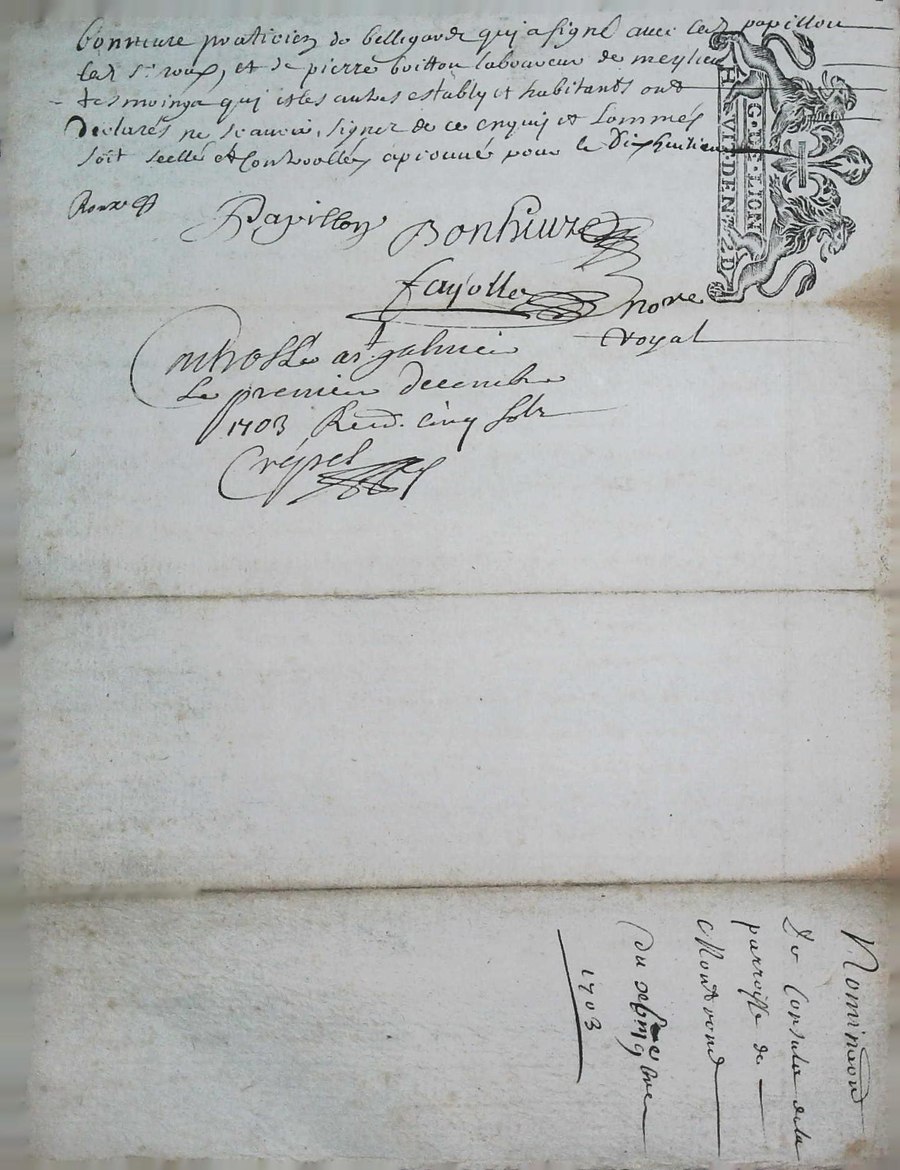 bonniure praticien de bellegarde qui a signé avec led papillon
led Sr. roux, et de pierre boitton laboureur de meylieu
tesmoings qui et les autres estably et habitants ont
Declarés ne scavoir signer de ce enquis et sommés
soit scellé et Controollés apronué pour le Dixhuitieme
G. DE LION
HVIT DEN. 2 D
Roux
Papillon Bonniure
fayolle nore
royal
Controllé a st. galmier
Le premier decembre
1703 Recd. cinq solz
Crépet
Nomination
De Consulz de la
parroisse de
Montrond
Du
1703